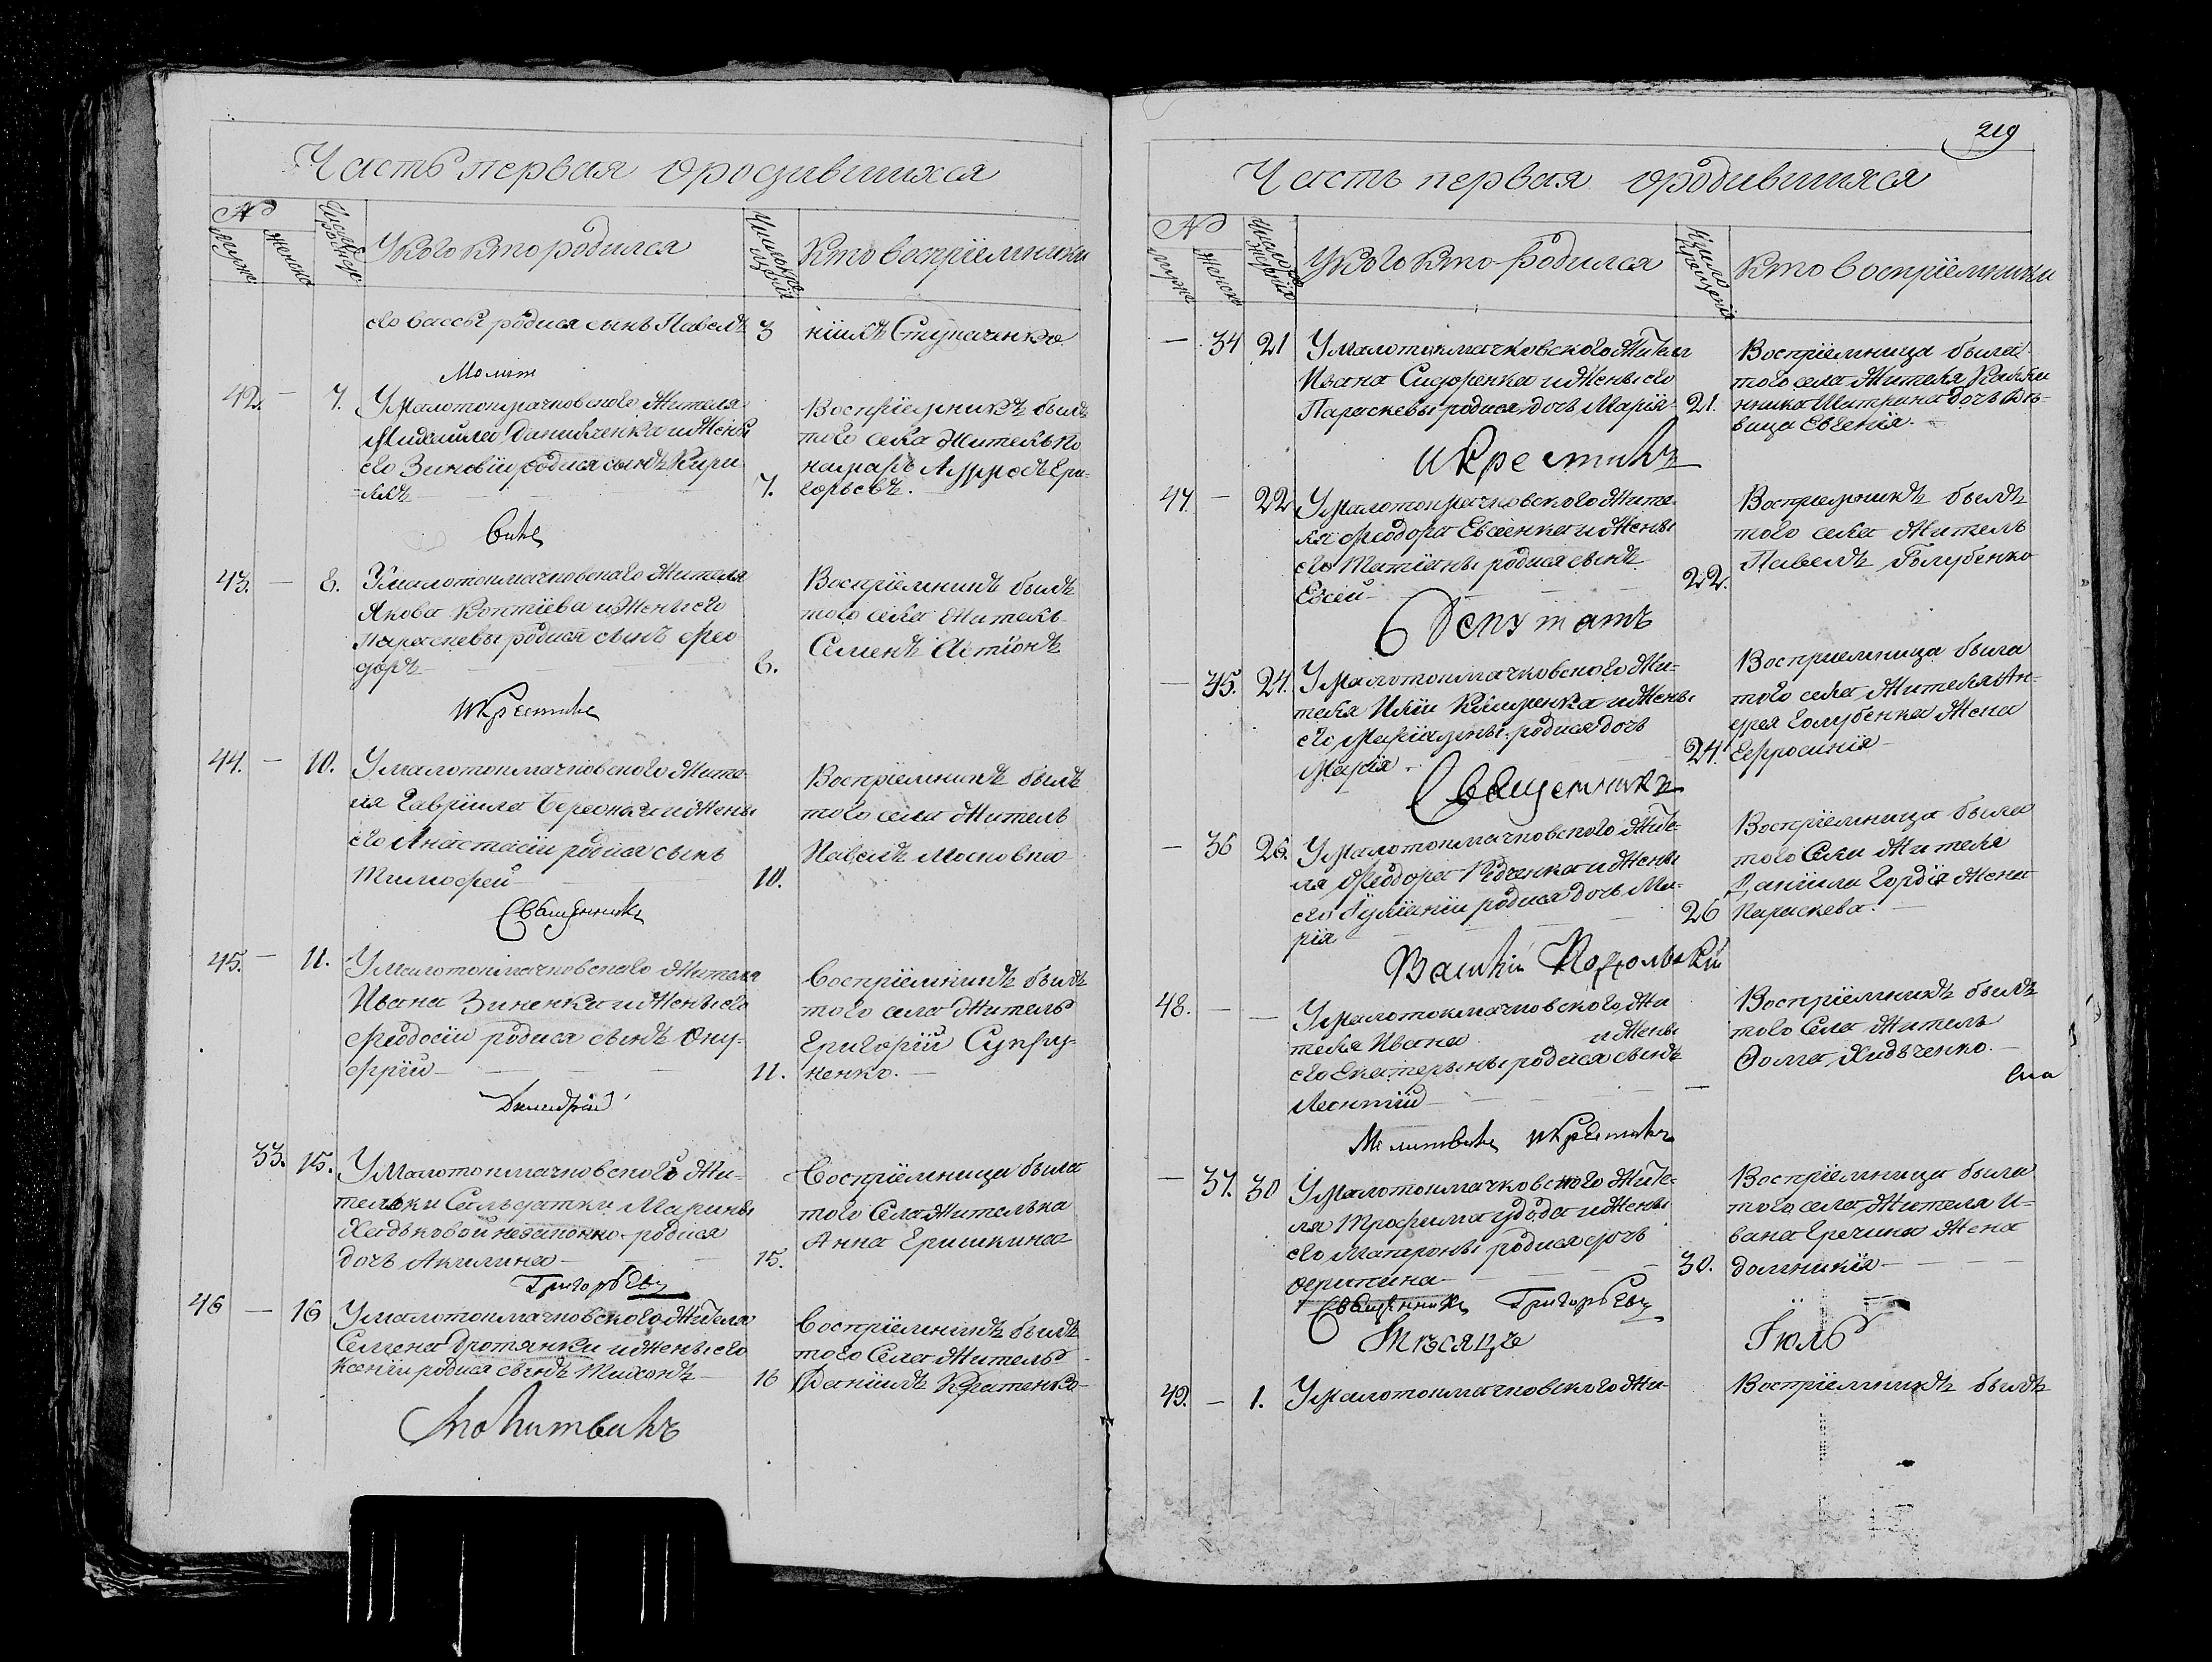 Часть первая о родившихся
№
мужск
женск
У кого кто родился
Кто восприемники
его Вассы родися сынъ Павелъ
3
нiилъ Ступаченко
Молит
42. — 7. У малотокмачковского жителя
Михаила Даниленка и жены
его Зиновiи родися сынъ Кири-
лъ
7.
Восприемникъ былъ
того села житель по
номарь Андрей Гри-
горьевъ.
вилъ
43. — 8. У малотокмачковского жителя
Якова Коптiева и жены его
Параскевы родися сынъ Фео
доръ
8.
Восприемникъ былъ
того села житель
Семенъ
и крестилъ
44. — 10. У малотокмачковского жите-
ля Гаврiила и жены
его Анастасiи родися сынъ
Тимофей
10.
Восприемникъ былъ
того села житель
Павелъ Московко
Священникъ
45. — 11. У малотокмачковского жителя
Ивана Зиненка и жены его
Феодосiи родися сынъ Ону-
фрiй
11.
Восприемникъ былъ
того села житель
Григорiй Супру-
ненко.
Димитрiй
33. 15. У малотокмачковского жи-
тельки Сальдатки Марины
Хадьковой незаконно родися
дочь Акилина
15.
Восприемница была
того села жителька
Анна Гришкина
Григорьевъ
46 — 16 У малотокмачковского жителя
Семена Дротянки и жены его
Ксенiи родися сынъ Тихонъ
16
Восприемникъ былъ
того села житель
Данiилъ Кратенко
Молитвилъ
219
Часть первая о родившихся
№
мужск
женск
У кого кто родился
Число крещенiя
Кто восприемники
— 34 21 У малотокмачковского жителя
Ивана Сидоренка и жены его
Параскевы родися дочь Марiя
21.
Восприемница была
того села жителя Калли
нника Шаткина дочь дѣ-
вица Евгенiя.
и крестилъ
47 — 22 У малотокмачковского жите-
ля Феодора Евсеенка и жены
его Татiаны родися сынъ
Евсей
22.
Восприемникъ былъ
того села житель
Павелъ Голубенко
Депутатъ
— 35. 24. У малотокмачковского жи-
теля Илiи и жены
его Марiанны родися дочь
Марiя
24.
Восприемница была
того села жителя Ан-
дрея Голубенка жена
Ефросинiя
Священникъ
— 36 26. У малотокмачковского жите-
ля Феодора Редченка и жены
его Iулiанiи родися дочь Ма-
рiя
26
Восприемница была
того села жителя
Данiила Гордiя жена
Параскева.
Подольскiй
48. — — У малотокмачковского жи
теля Ивана и жены
его Екатерины родися сынъ
Леонтiй
—
Восприемникъ былъ
того села житель
Фома Хидченко.
Молитвилъ и крестилъ
— 37. 30 У малотокмачковского жите-
ля Трофима Удода и жены
его Матроны родися дочь
Агрипина
30.
Восприемница была
того села жителя И-
вана Гречина жена
Домникiя
Священникъ Григорьевъ
Месяцъ Iюль
49. — 1. У малотокмачковского жи-
Восприемникъ былъ